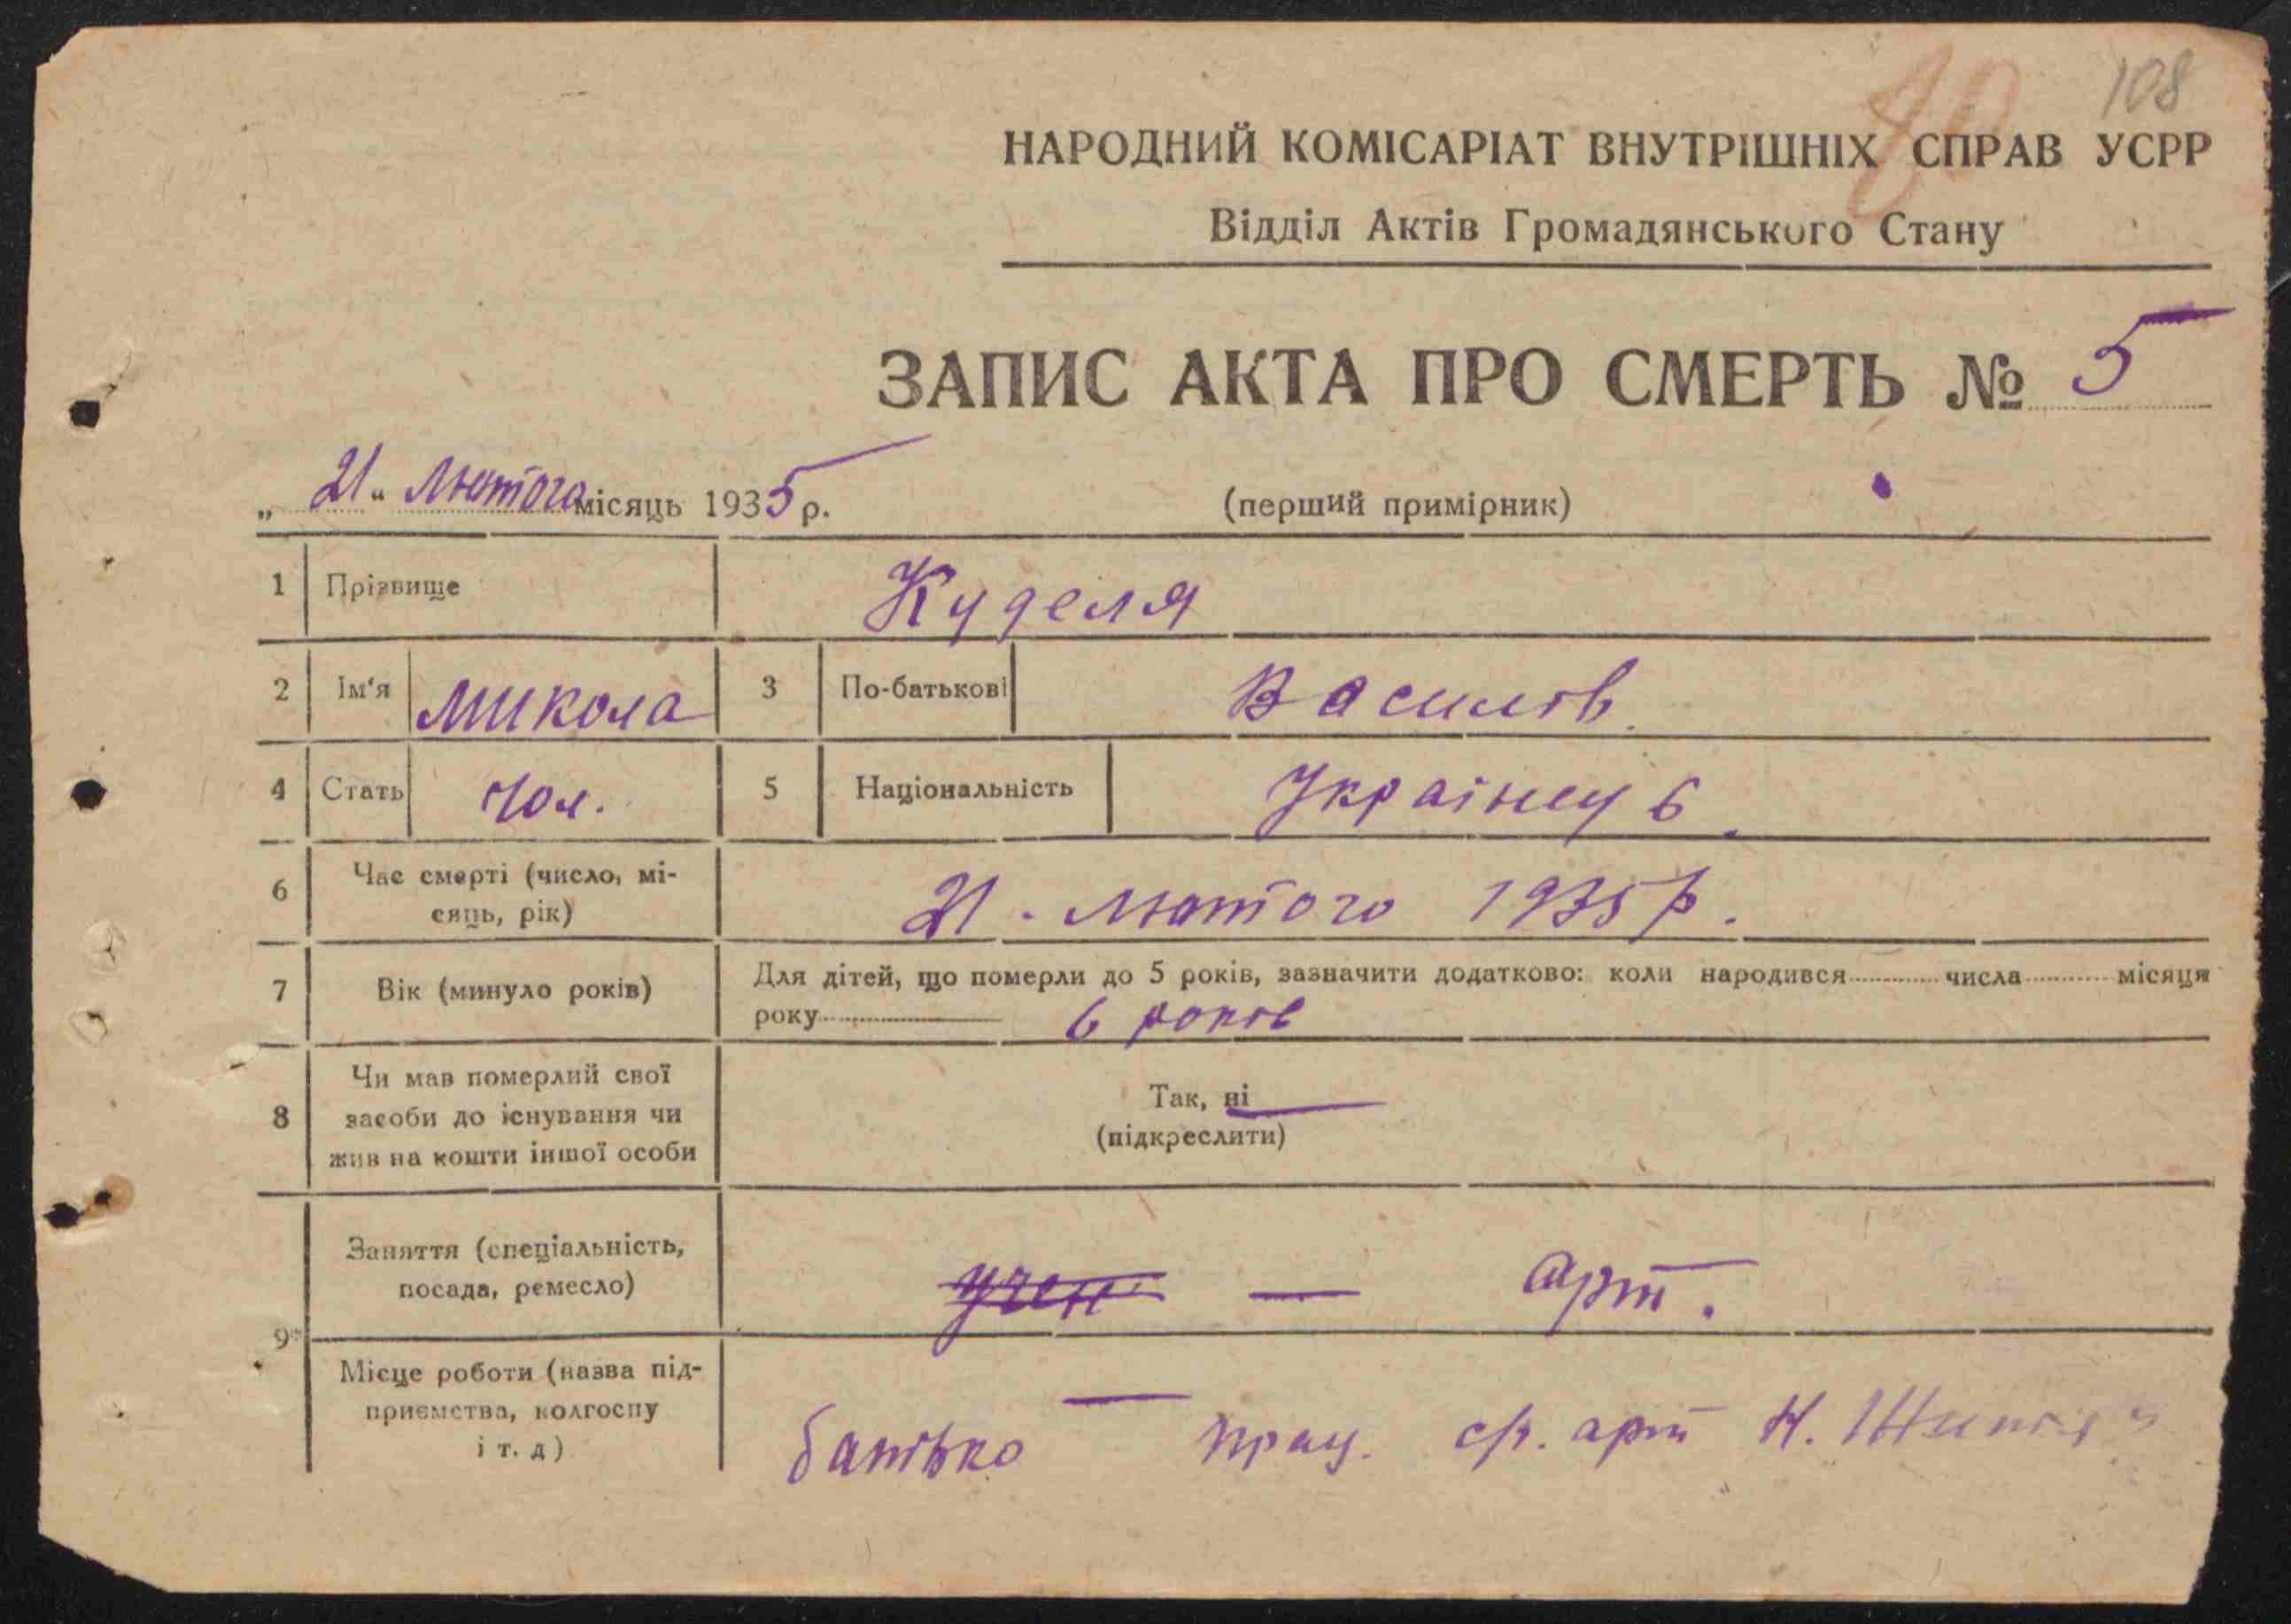 108
НАРОДНИЙ КОМІСАРІАТ ВНУТРІШНІХ СПРАВ УСРР
Відділ Актів Громадянського Стану
ЗАПИС АКТА ПРО СМЕРТЬ № 5
„ 21 “ Лютого місяць 1935 р.
(перший примірник)
1 Прізвище Куделя
2 Ім'я Микола 3 По-батькові Василів
4 Стать Чол. 5 Національність Українец
6 Час смерті (число, мі-
сяць, рік) 21. Лютого 1935 р.
7 Вік (минуло років) Для дітей, що померли до 5 років, зазначити додатково: коли народився числа місяця
року 6 років
8 Чи мав померлий свої
засоби до існування чи
жив на кошти іншої особи
Так, ні
(підкреслити)
9 Заняття (спеціальність,
посада, ремесло) учен — арт.
Місце роботи (назва під-
приємства, колгоспу
і т. д)
батько — прац. с/г. арт Н. Життя